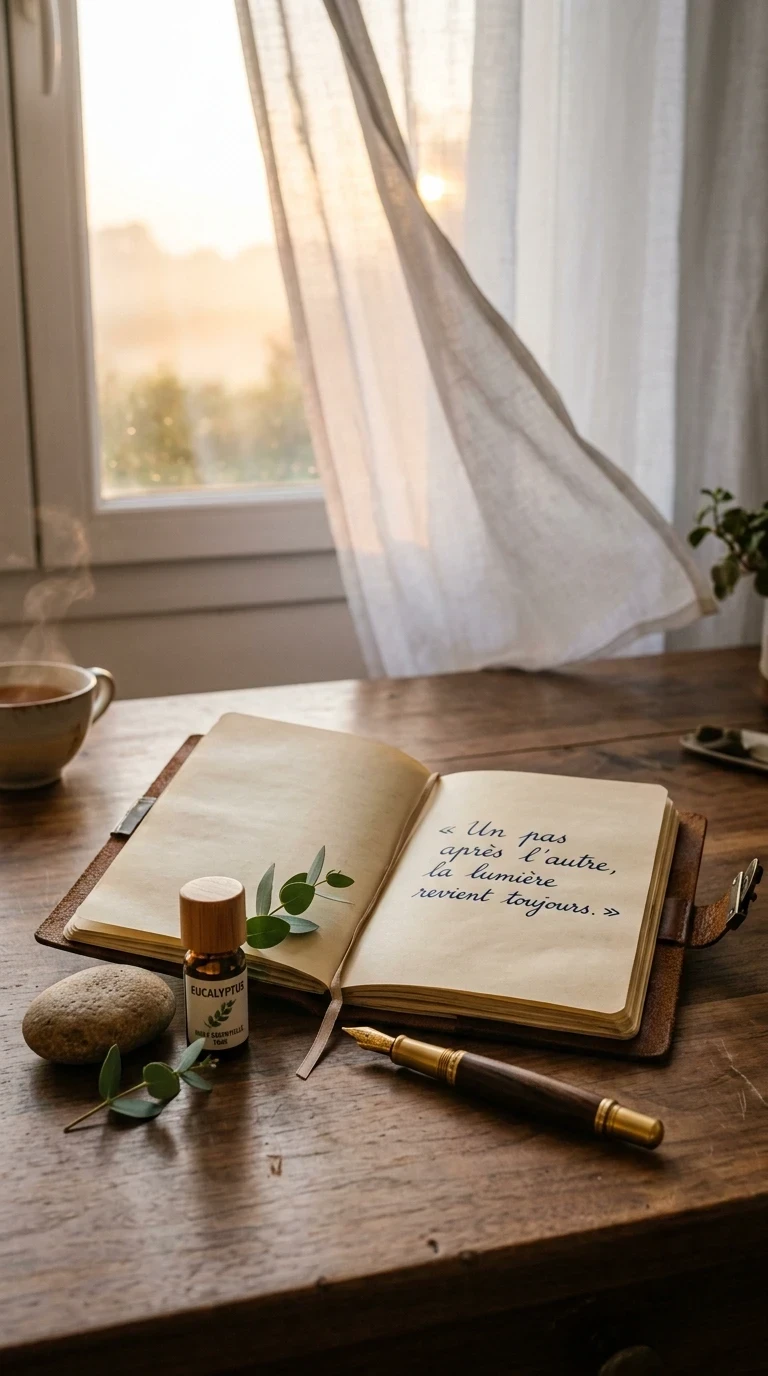 « Un pas
après l'autre,
la lumière
revient toujours. »
EUCALYPTUS